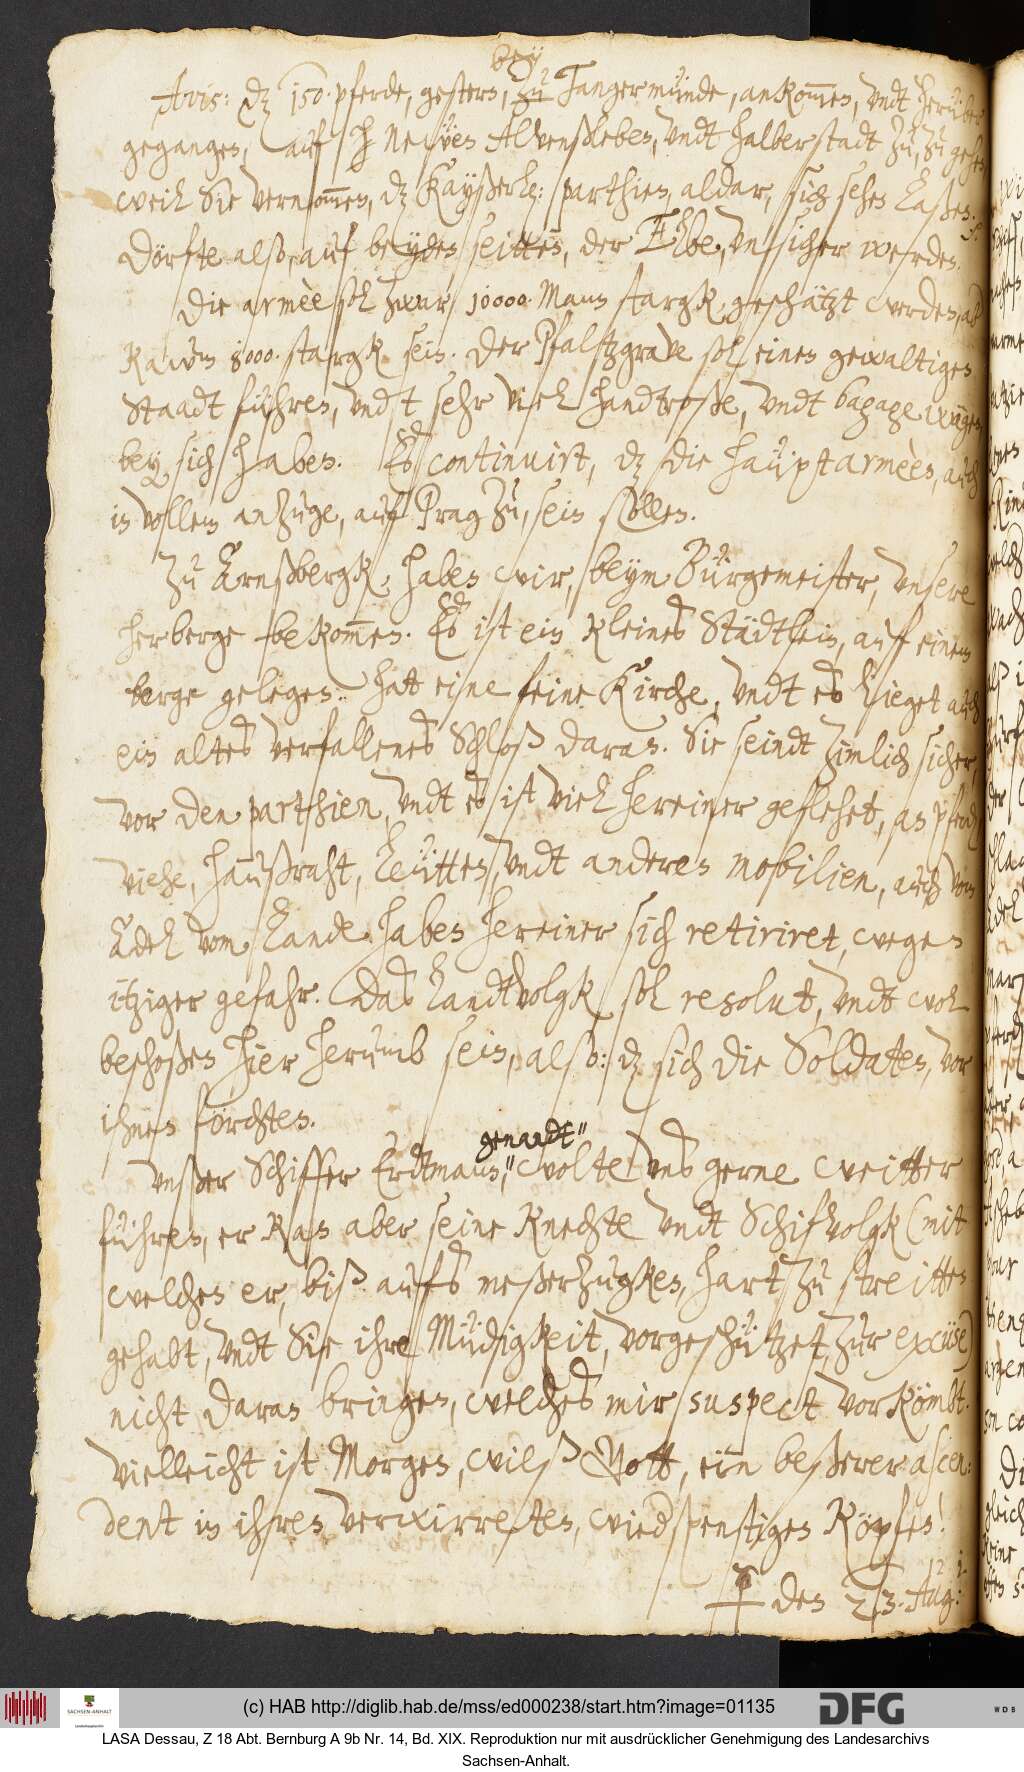 bey
Avis: dz 150. pferde, gestern, zu Tangermünde, ankommen, undt herüber
gegangen, auf h Neuen Alvenßleben, undt Halberstadt zu, zu gehen
weil Sie vernommen, dz Kayßerl: parthien, aldar, sich sehen laßen.
Dörfte also, auf beyden seitten, der Elbe, unsicher werden.
Die armèe sol zwar, 10000. Mann stargk geschätzt werden, ab
kaum 8000. stargk sein. Der Pfaltzgrave sol einen gewaltigen
Staadt führen, undt sehr viel handtroße, undt bagage wägen
bey sich haben. Es continuirt, dz die hauptarmèen, auch
in vollem anzuge, auf Prag zu, sein sollen.
Zu Arnßbergk, haben wir, beym Bürgemeister, unsere
herberge bekommen. Es ist ein kleines Städtlein, auf einem
berge gelegen. hat eine feine Kirche, undt es lieget auch
ein altes verfallenes Schloß daran. Sie seindt zimlich sicher,
vor den parthien, undt es ist viel hereiner geflehet, an pferd
viehe, haußraht, leütten, undt anderen mobilien, auch vom
Adel vom Lande haben hereiner sich retiriret, wegen
itziger gefahr. Das Landtvolgk sol resolut, undt wol
beschoßen hier herumb sein, also: dz sich die Soldaten, vor
ihnen förchten.
genandt"
Unßer Schiffer Erdtmann," wolte uns gerne weitter
führen, er kan aber seine Knechte undt Schifvolgk (mit
welchen er, biß aufs meßerzugken, hart zu streitten
gehabt, undt Sie ihre Müdigkeit, vorgeschützet, zur excuse)
nicht daran bringen, welches mir suspect vorkömbt.
Vielleicht ist Morgen, wilß Gott, ein beßerer ascen:
dent in ihren verwirreten, wiedspenstigen Köpfen!
den 23. Aug:
(c) HAB http://diglib.hab.de/mss/ed000238/start.htm?image=01135
SACHSEN-ANHALT
DFG
WDB
LASA Dessau, Z 18 Abt. Bernburg A 9b Nr. 14, Bd. XIX. Reproduktion nur mit ausdrücklicher Genehmigung des Landesarchivs
Sachsen-Anhalt.